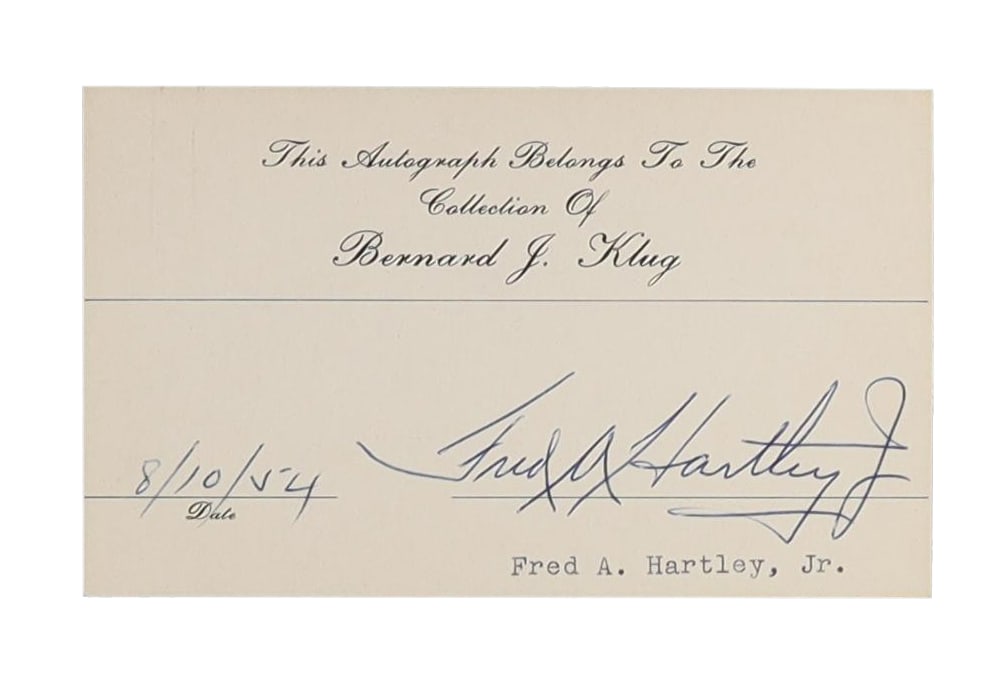 This Autograph Belongs To The
Collection Of
Bernard J. Klug
8/10/54
Fred A Hartley J
Date
Fred A. Hartley, Jr.